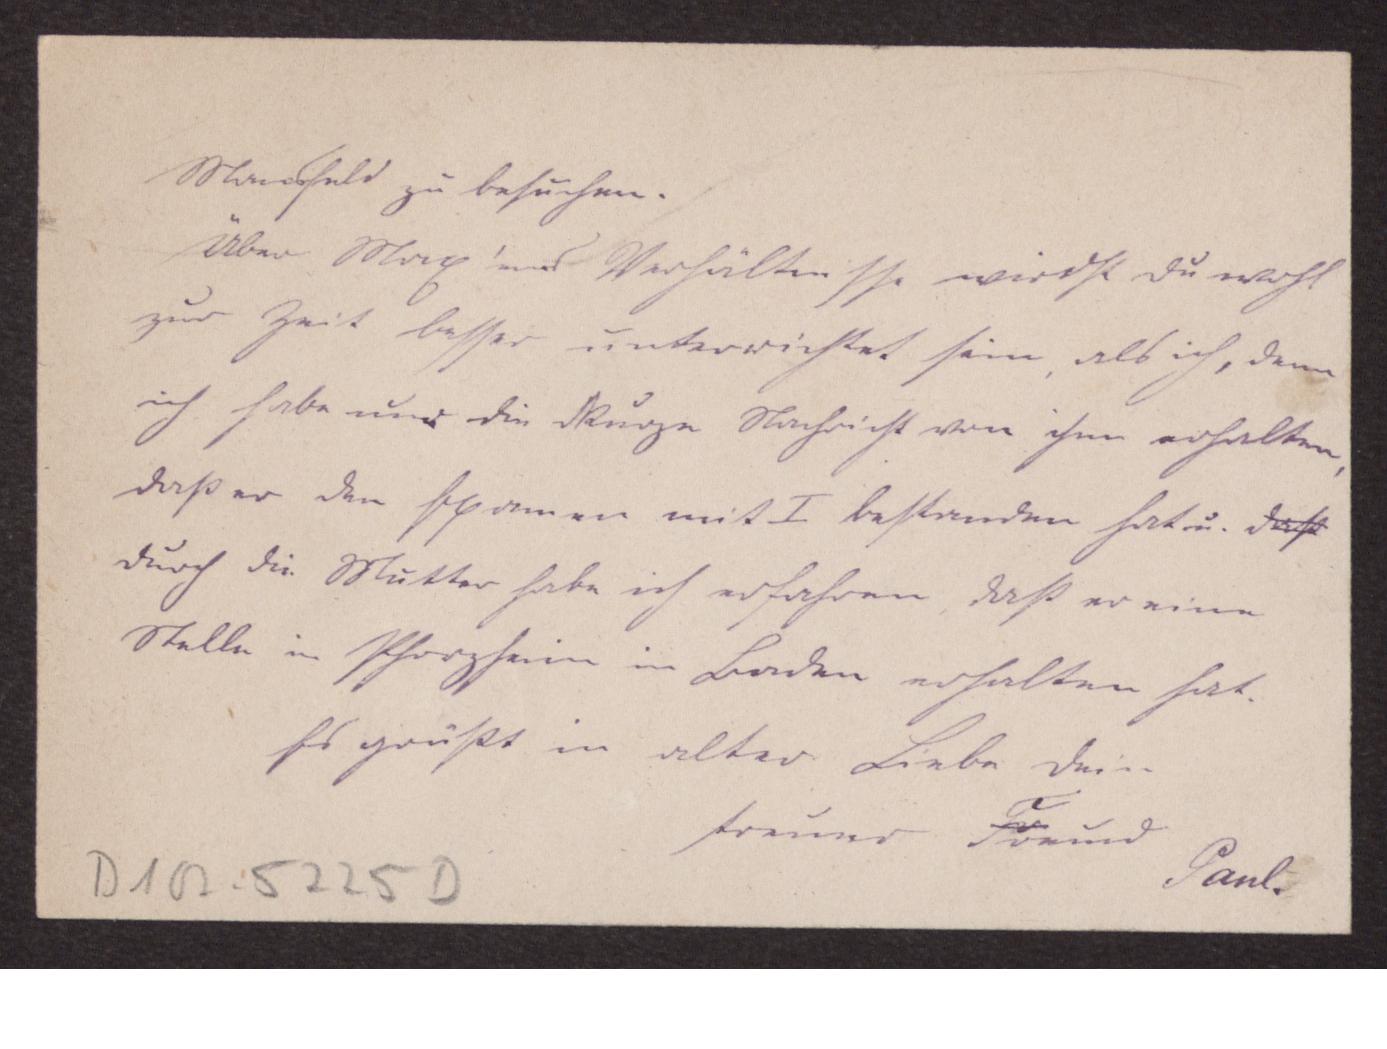 Mansfeld zu besuchen.
Über Max'ens Verhältnisse wirdst du wohl
zur Zeit besser unterrichtet sein, als ich, denn
ich habe nur die kurze Nachricht von ihm erhalten,
daß er den Examen mit I bestanden hat u. daß
durch die Mutter habe ich erfahren, daß er eine
Stelle in Pforzheim in Baden erhalten hat.
Es grüßt in alter Liebe dein
treuer Freund
Paul.
D 102-5225 D